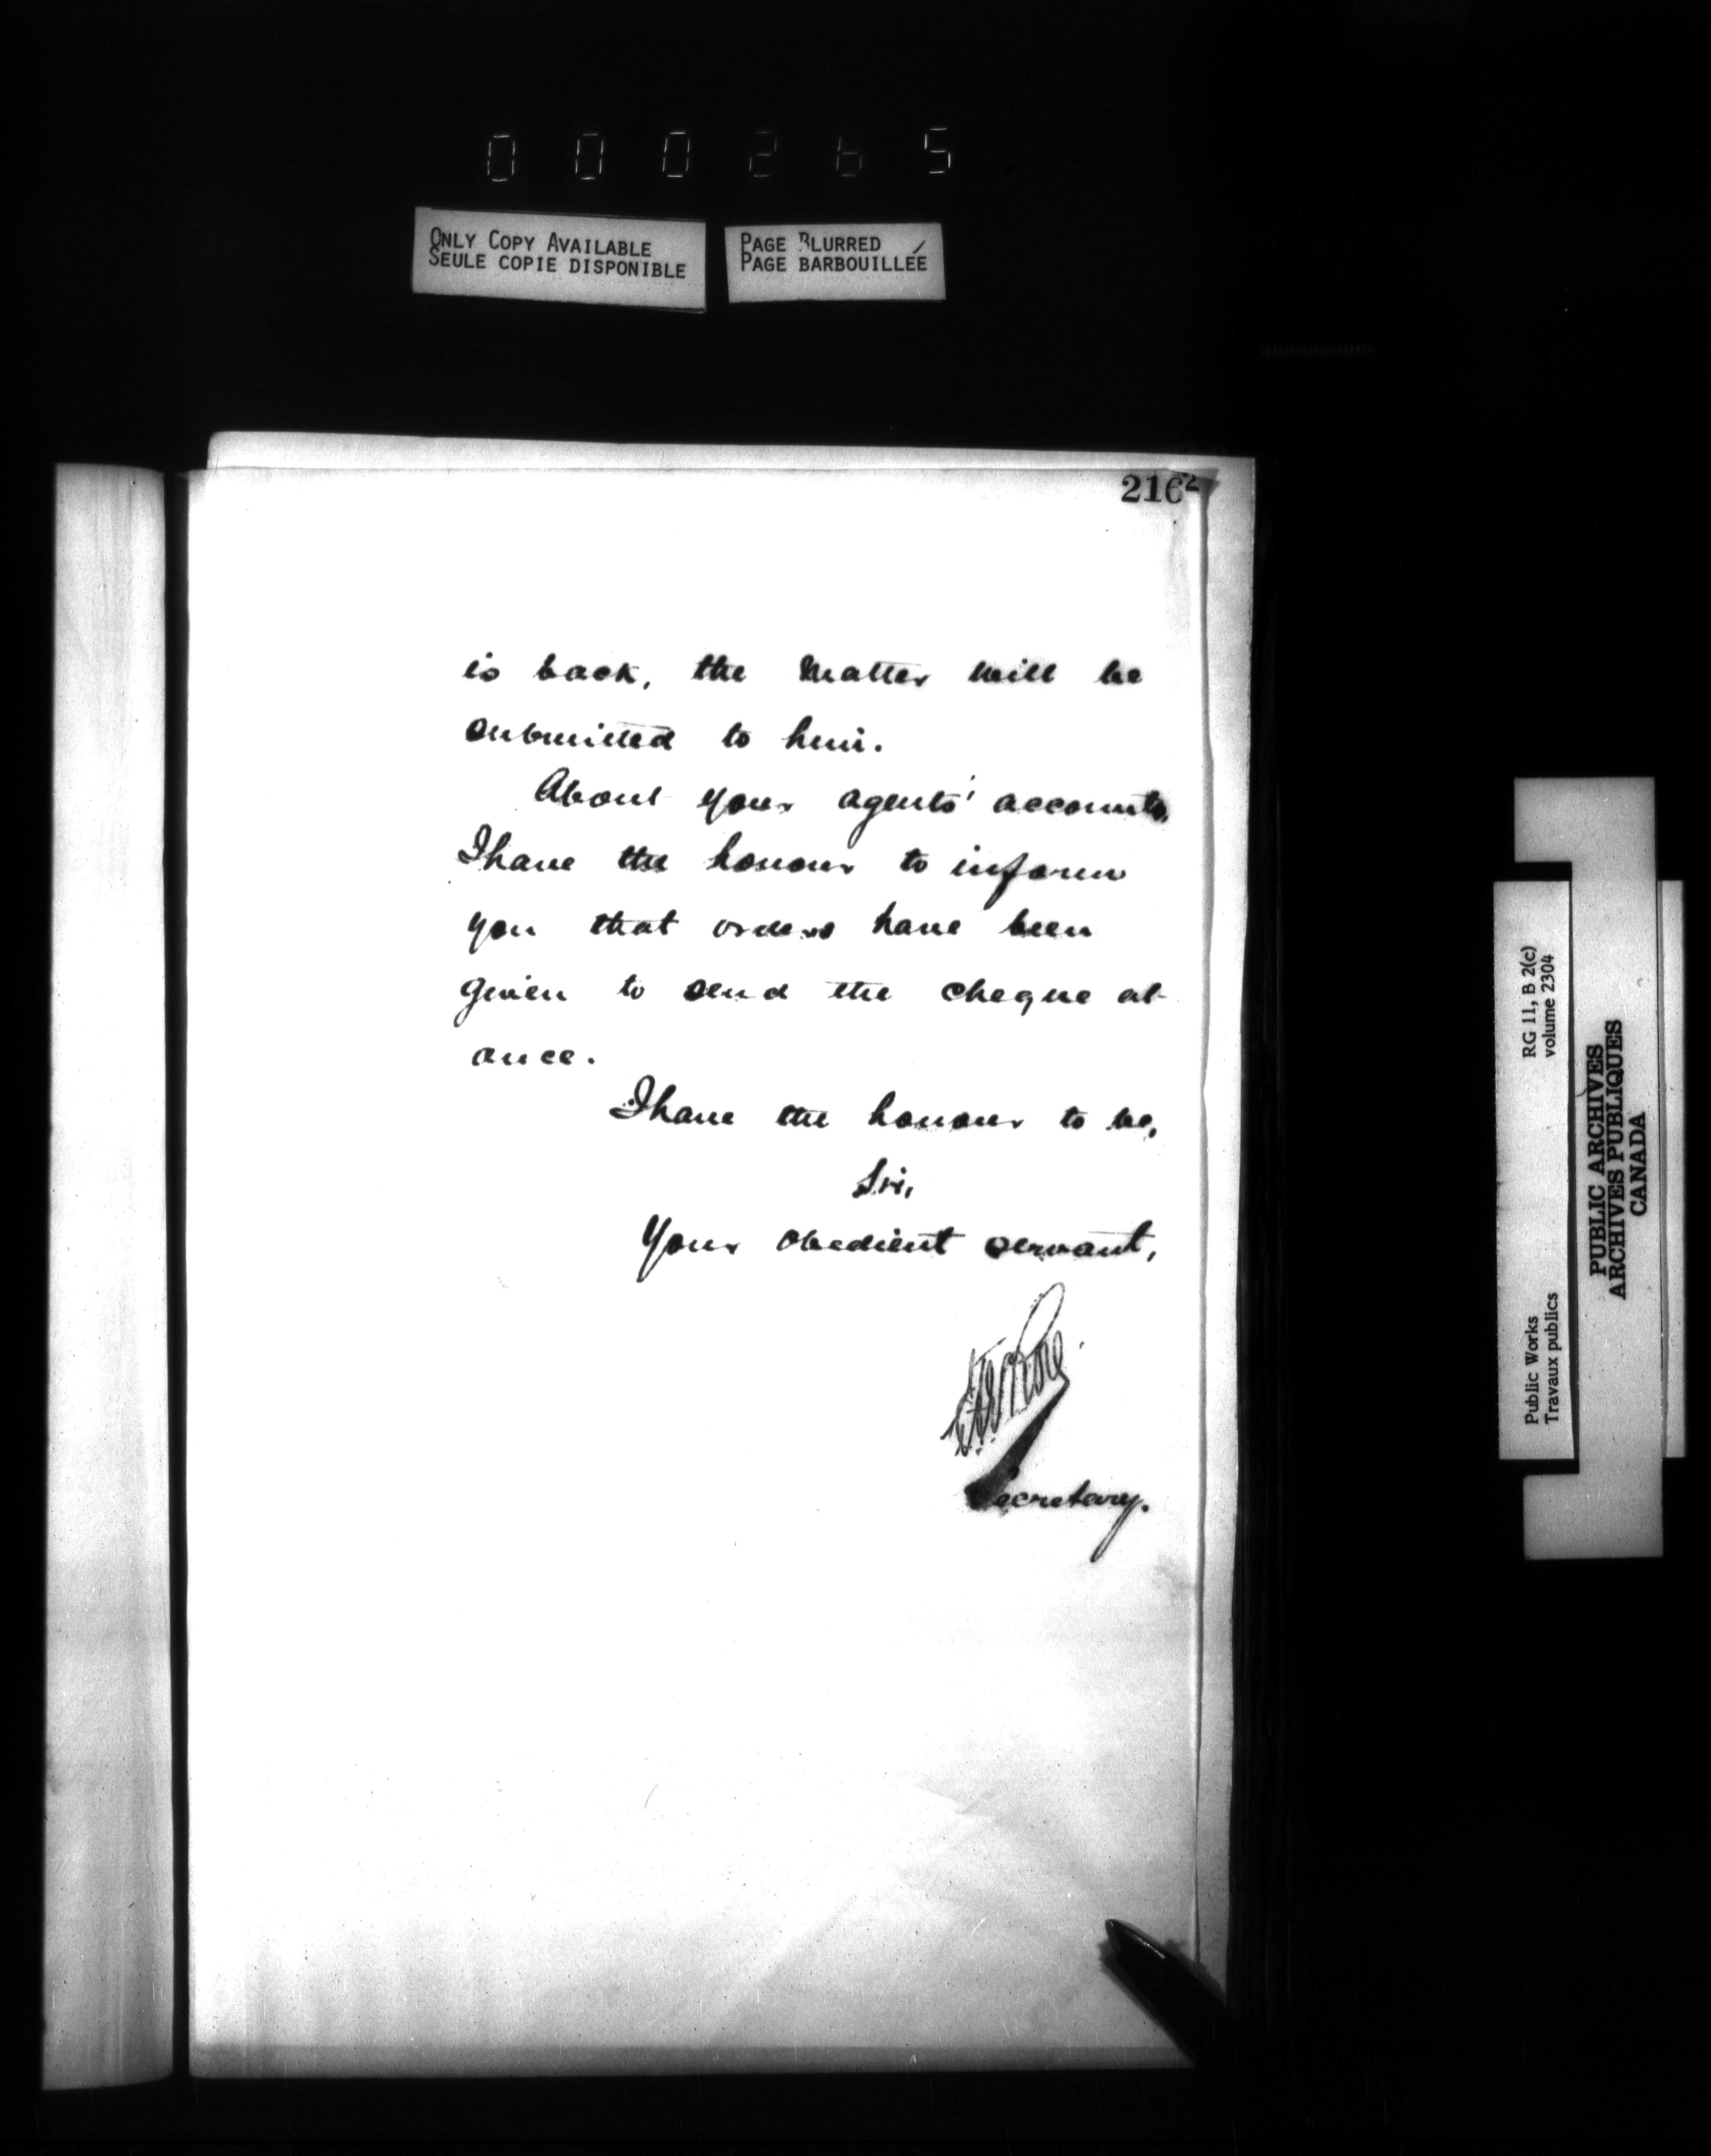 000265
ONLY COPY AVAILABLE
SEULE COPIE DISPONIBLE
PAGE BLURRED
PAGE BARBOUILLÉE
216²
is back, the matter will be
submitted to him.
About your agents' accounts,
I have the honour to inform
you that orders have been
given to send the cheque at
once.
I have the honour to be,
Sir,
Your obedient servant,
Secretary.
RG 11, B 2(c)
volume 2304
Public Works
Travaux publics
PUBLIC ARCHIVES
ARCHIVES PUBLIQUES
CANADA